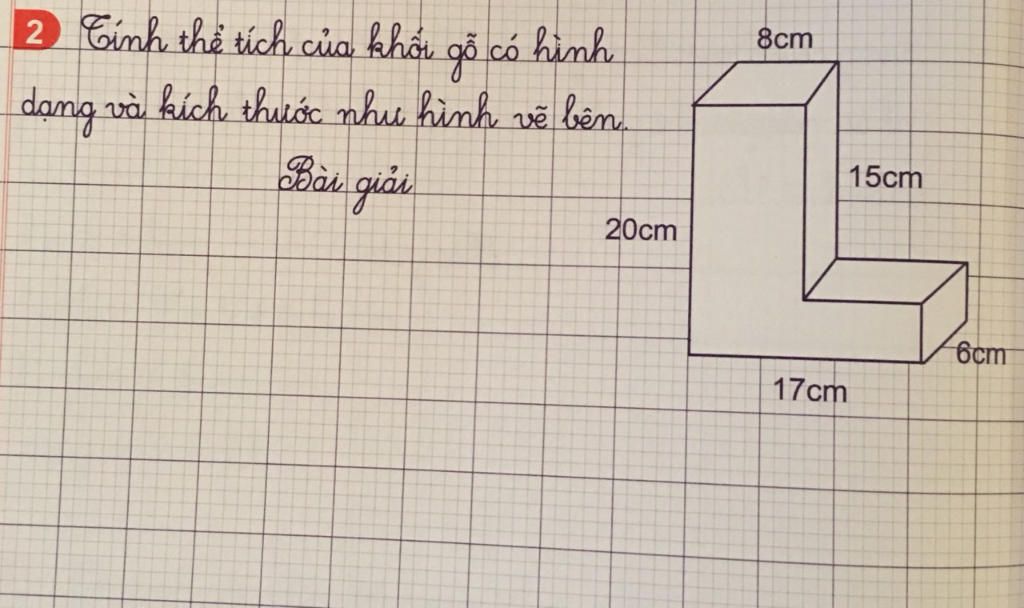 2 Tính thể tích của khối gỗ có hình
dạng và kích thước như hình vẽ bên.
Bài giải
8cm
15cm
20cm
6cm
17cm